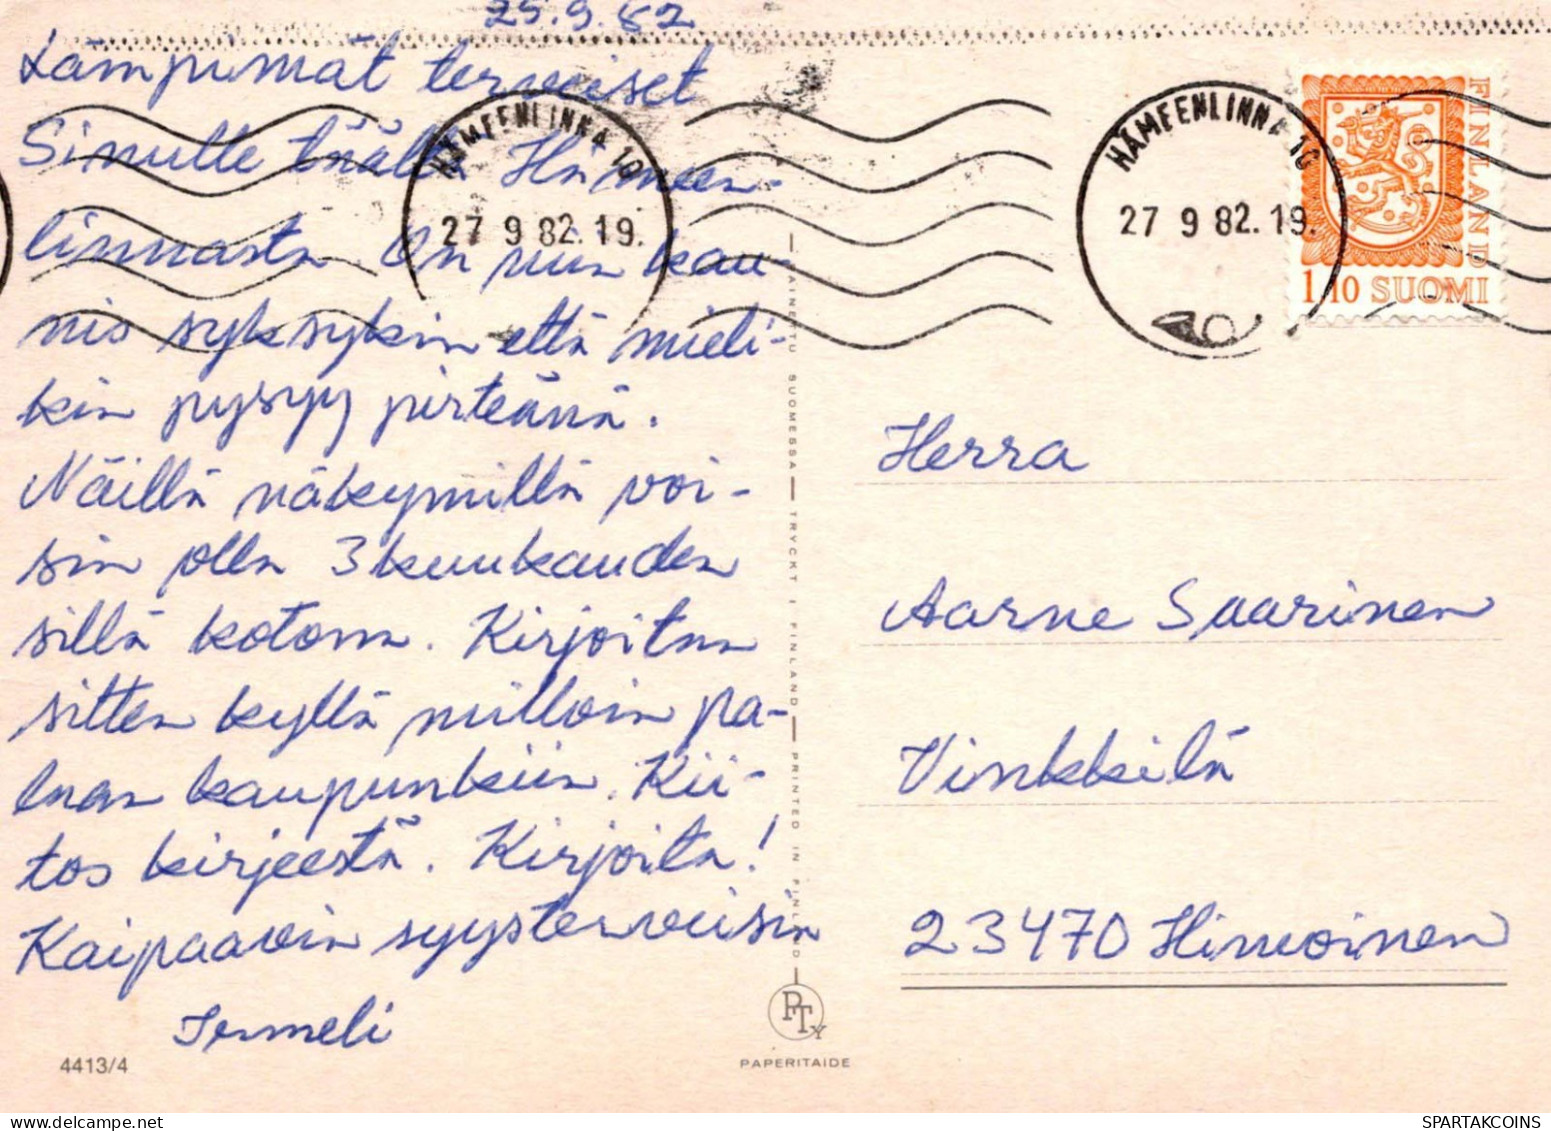 25.9.82
Lämpimät terveiset
Sinulle täältä Hämeen-
linnasta On niin kau-
nis syksykin että mieli-
kin pysyy pirteänä.
Näillä näkymillä voi-
sin olla 3 kuukauden
sillä kotona. Kirjoitan
sitten kyllä milloin pa-
laan kaupunkiin. Kii-
tos kirjeestä. Kirjoita!
Kaipaavin syysterveisin
Irmeli
4413/4
HÄMEENLINNA 10
27 9 82.19.
HÄMEENLINNA 10
27 9 82.19.
FINLAND
1,10 SUOMI
PAINETTU SUOMESSA — TRYCKT I FINLAND — PRINTED IN FINLAND
Herra
Aarne Saarinen
Vinkkilä
23470 Hinnoinen
PTY
PAPERITAIDE
SPARTAKCOINS